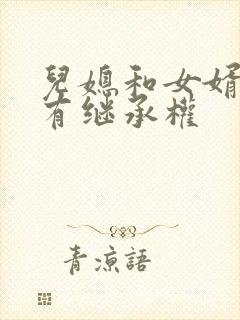 兒媳和女婿
有继承權
青涼語